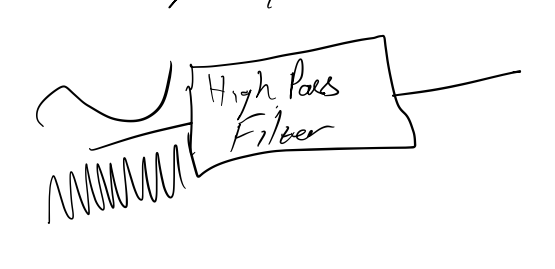 High Pass
Filter